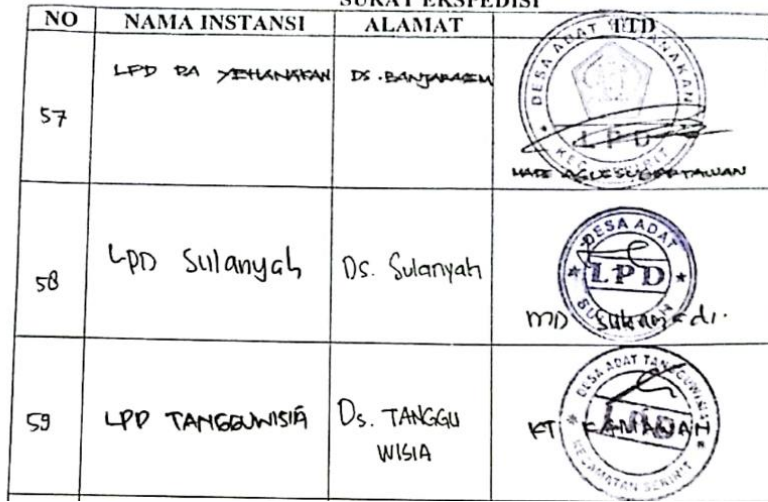 SURAT EKSPEDISI
NO NAMA INSTANSI ALAMAT TTD
57 LPD DA YEHANAKAN DS. BANJARASEM
DESA ADAT YEHANAKAN
LPD
KEC. SERIRIT
MADE AGUS SUGARTAWAN
58 LPD Sulanyah Ds. Sulanyah
DESA ADAT
LPD
MD
59 LPD TANGGUWISIA Ds. TANGGU
WISIA
DESA ADAT TANGGUWISIA
LPD
KECAMATAN SERIRIT
KT KAMAWAN